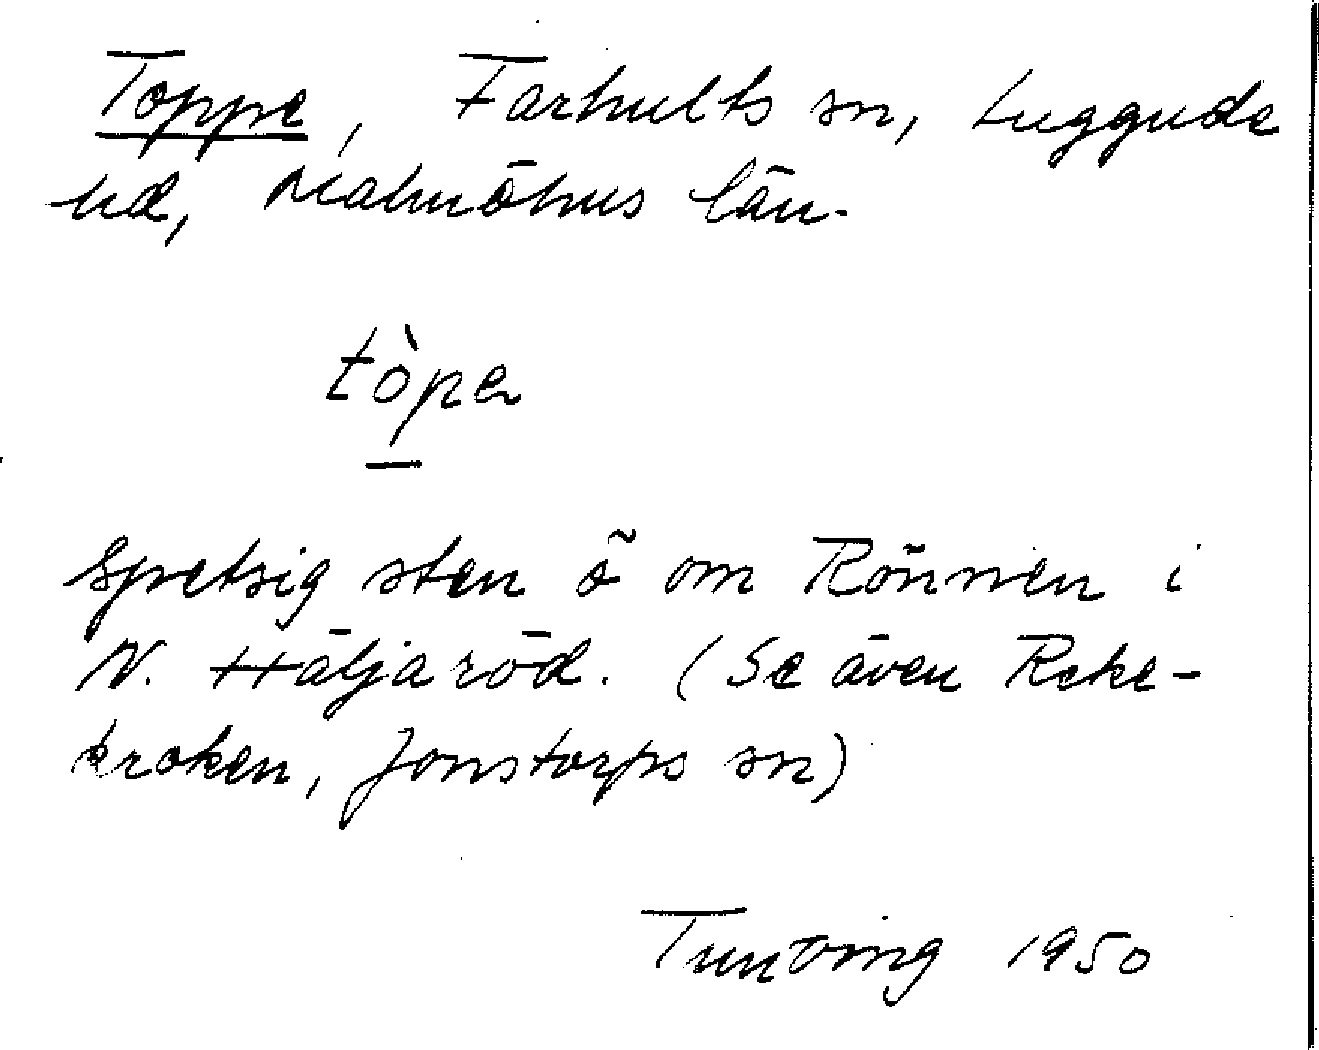 Toppe, Farhults sn, Luggude
hd, Malmöhus län.
tòpe
Spetsig sten ö om Rönnen i
N. Häljaröd. (Se även Reke-
kroken, Jonstorps sn)
Tuneming 1950